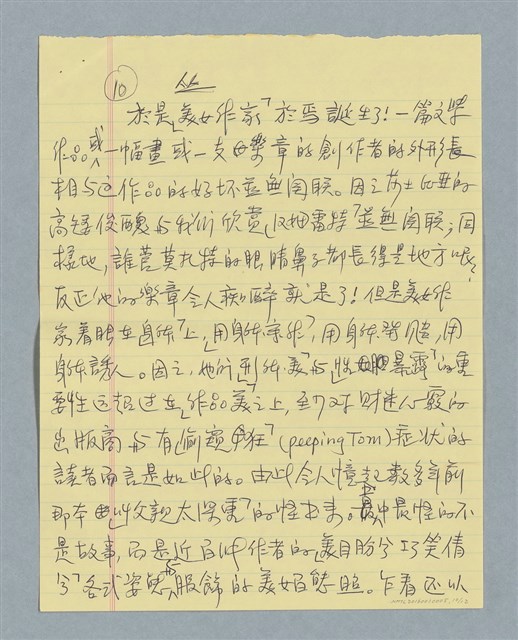 10
於是「美女作家」於焉誕生了!一篇文學
作品或一幅畫或一支樂章的創作者的外形長
相与这作品的好坏並無関联。因之莎士比亚的
高矮俊醜与我們欣賞「汉姆雷特」並無関联;同
樣地,誰管莫札特的眼睛鼻子都長得是地方呢?
反正他的樂章令人痴醉就是了!但是美女作
家着眼在身体上,「用身体寫作」,用身体
身体誘人。因之,他們「形体美」与「性暴露」的重
要性远超过在「作品美」之上,至少对财迷心竅的
出版商与有「偷窺狂」(peeping Tom)症状的
讀者而言是如此的。由此令人憶起數多年前
那本「父親太保重」的怪书来。最中最怪的不
是故事,而是近百帧作者的「美目盼兮巧笑倩
兮」各式姿態、服飾的美媚態照。乍看还以